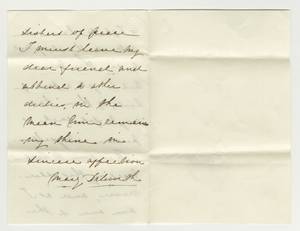 Sisters of peace
I must leave my
dear friend and
attend to other
duties, in the
mean time remain
my thine in
sincere affection
Mary